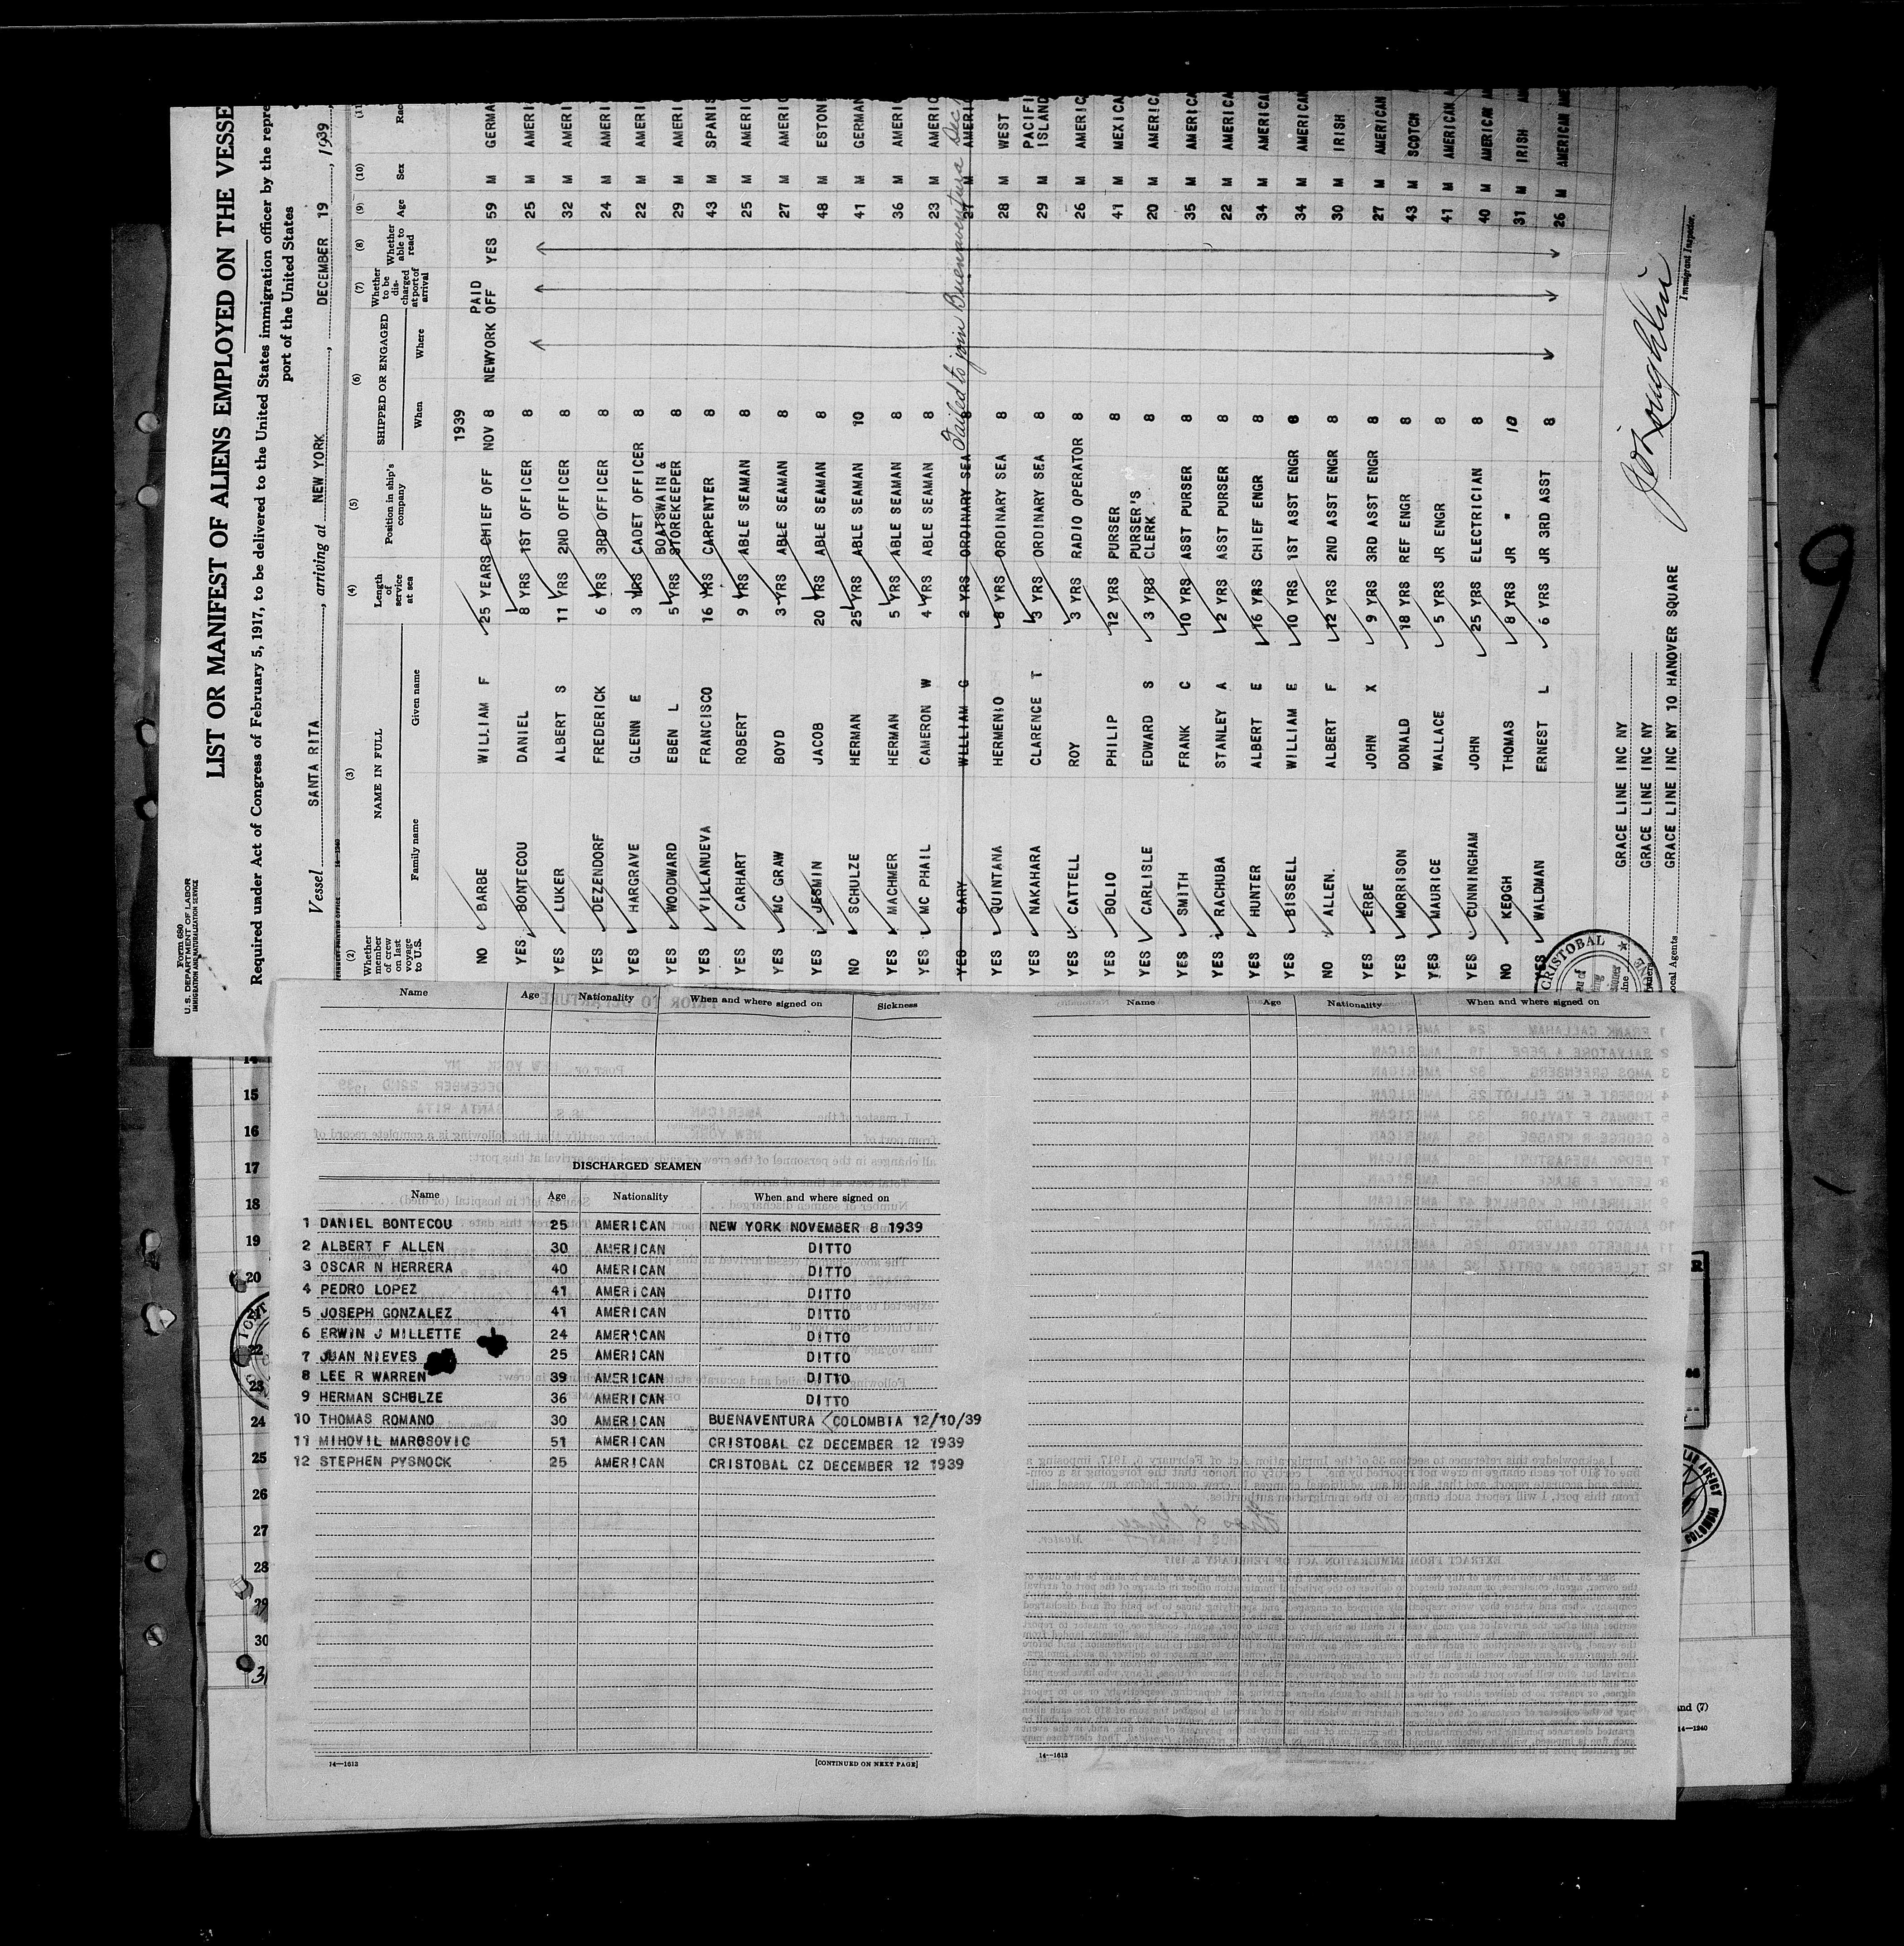 Form 680
U.S. DEPARTMENT OF LABOR
IMMIGRATION AND NATURALIZATION SERVICE
LIST OR MANIFEST OF ALIENS EMPLOYED ON THE VESSE
Required under Act of Congress of February 5, 1917, to be delivered to the United States immigration officer by the repre
port of the United States
Vessel SANTA RITA, arriving at NEW YORK, DECEMBER 19, 1939
(2) (3) (4) (5) (6) (7) (8) (9) (10) (11
Whether member of crew on last voyage to U.S. NAME IN FULL Family name Given name Length of service at sea Position in ship's company SHIPPED OR ENGAGED When Where Whether to be discharged at port of arrival Whether able to read Age Sex Rac
1939 PAID
NO BARBE WILLIAM F 25 YEARS CHIEF OFF NOV 8 NEWYORK OFF YES 59 M GERMA
YES BONTECOU DANIEL 8 YRS 1ST OFFICER 8 25 M AMERI
YES LUKER ALBERT S 11 YRS 2ND OFFICER 8 32 M AMERI
YES DEZENDORF FREDERICK 6 YRS 3RD OFFICER 8 24 M AMERI
YES HARGRAVE GLENN E 3 YRS CADET OFFICER 8 22 M AMERI
YES WOODWARD EBEN L 5 YRS BOATSWAIN & STOREKEEPER 8 29 M AMERI
YES VILLANUEVA FRANCISCO 16 YRS CARPENTER 8 43 M SPANIS
YES CARHART ROBERT 9 YRS ABLE SEAMAN 8 25 M AMERIC
YES MC GRAW BOYD 3 YRS ABLE SEAMAN 8 27 M AMERIC
YES JESMIN JACOB 20 YRS ABLE SEAMAN 8 48 M ESTONI
NO SCHULZE HERMAN 25 YRS ABLE SEAMAN 10 41 M GERMAN
YES MACHMER HERMAN 5 YRS ABLE SEAMAN 8 36 M AMERI
YES MC PHAIL CAMERON W 4 YRS ABLE SEAMAN 8 23 M AMERIC
YES GARY WILLIAM G 2 YRS ORDINARY SEA 8 Failed to join Buenaventura Dec 27 M AMERI
YES QUINTANA HERMENIO 8 YRS ORDINARY SEA 8 28 M WEST
YES NAKAHARA CLARENCE T 3 YRS ORDINARY SEA 8 29 M PACIFI ISLAND
YES CATTELL ROY 3 YRS RADIO OPERATOR 8 26 M AMERIC
YES BOLIO PHILIP 12 YRS PURSER 8 41 M MEXICA
YES CARLISLE EDWARD S 3 YRS PURSER'S CLERK 8 20 M AMERICA
YES SMITH FRANK C 10 YRS ASST PURSER 8 35 M AMERICA
YES RACHUBA STANLEY A 2 YRS ASST PURSER 8 22 M AMERICA
YES HUNTER ALBERT E 16 YRS CHIEF ENGR 8 34 M AMERICAN
YES BISSELL WILLIAM E 10 YRS 1ST ASST ENGR 8 34 M AMERICAN
NO ALLEN. ALBERT F 12 YRS 2ND ASST ENGR 8 30 M IRISH
YES ERBE JOHN X 9 YRS 3RD ASST ENGR 8 27 M AMERICAN
YES MORRISON DONALD 18 YRS REF ENGR 8 43 M SCOTCH
YES MAURICE WALLACE 5 YRS JR ENGR 8 41 M AMERICAN
YES CUNNINGHAM JOHN 25 YRS ELECTRICIAN 8 40 M AMERICAN
NO KEOGH THOMAS 8 YRS JR " 10 31 M IRISH
YES WALDMAN ERNEST L 6 YRS JR 3RD ASST 8 26 M AMERICAN
GRACE LINE INC NY
GRACE LINE INC NY
GRACE LINE INC NY 10 HANOVER SQUARE
ocal Agents
Immigrant Inspector.
CRISTOBAL
9
Name Age Nationality When and where signed on Sickness
DISCHARGED SEAMEN
Name Age Nationality When and where signed on
1 DANIEL BONTECOU 25 AMERICAN NEW YORK NOVEMBER 8 1939
2 ALBERT F ALLEN 30 AMERICAN DITTO
3 OSCAR N HERRERA 40 AMERICAN DITTO
4 PEDRO LOPEZ 41 AMERICAN DITTO
5 JOSEPH GONZALEZ 41 AMERICAN DITTO
6 ERWIN J MILLETTE 24 AMERICAN DITTO
7 JUAN NIEVES 25 AMERICAN DITTO
8 LEE R WARREN 39 AMERICAN DITTO
9 HERMAN SCHULZE 36 AMERICAN DITTO
10 THOMAS ROMANO 30 AMERICAN BUENAVENTURA COLOMBIA 12/10/39
11 MIHOVIL MAROSOVIC 51 AMERICAN CRISTOBAL CZ DECEMBER 12 1939
12 STEPHEN PYSNOCK 25 AMERICAN CRISTOBAL CZ DECEMBER 12 1939
14—1613 [CONTINUED ON NEXT PAGE]
Name Age Nationality When and where signed on
14—1613
14
15
16
17
18
19
20
22
23
24
25
26
27
28
29
30
and (7)
14—1240